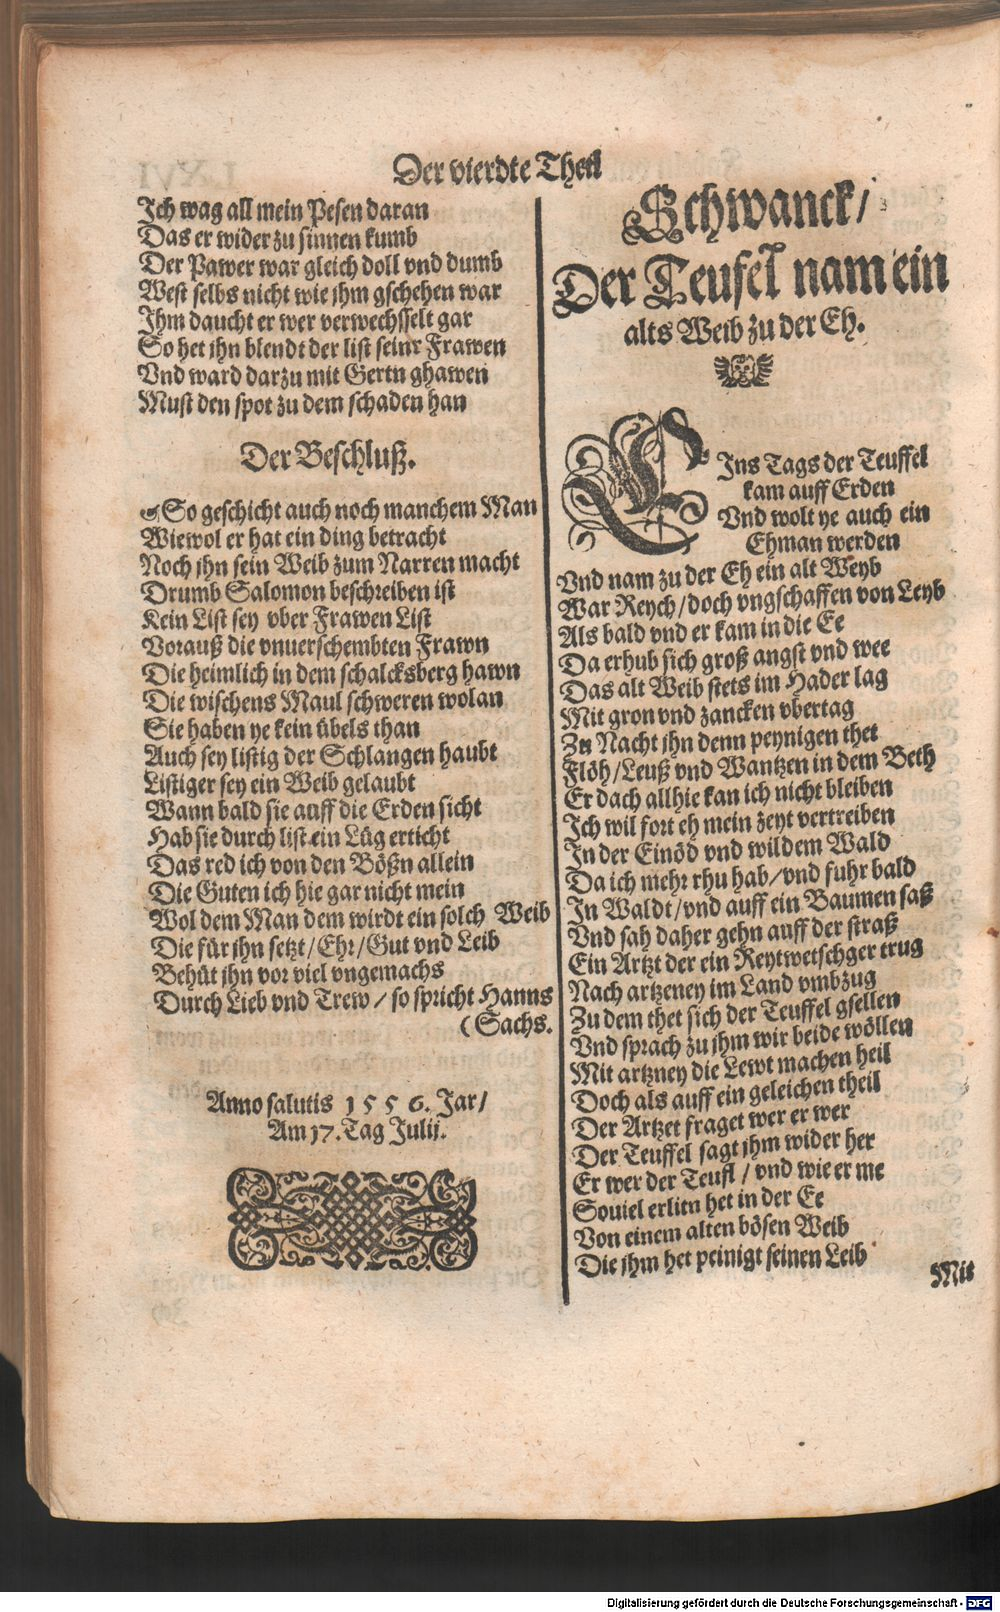 Der vierdte Theil
Ich wag all mein Pesen daran
Das er wider zu sinnen kumb
Der Pawer war gleich doll vnd dumb
West selbs nicht wie jhm gschehen war
Ihm daucht er wer verwechsselt gar
So het jhn blendt der list seinr Frawen
Vnd ward darzu mit Gertn ghawen
Must den spot zu dem schaden han
Der Beschluß.
So geschicht auch noch manchem Man
Wiewol er hat ein ding betracht
Noch jhn sein Weib zum Narren macht
Drumb Salomon beschreiben ist
Kein List sey vber Frawen List
Vorauß die vnuerschembten Frawn
Die heimlich in dem schalcksberg hawn
Die wischens Maul schweren wolan
Sie haben ye kein übels than
Auch sey listig der Schlangen haubt
Listiger sey ein Weib gelaubt
Wann bald sie auff die Erden sicht
Hab sie durch list ein Lüg erticht
Das red ich von den Bößn allein
Die Guten ich hie gar nicht mein
Wol dem Man dem wirdt ein solch Weib
Die für jhn setzt/Ehr/Gut vnd Leib
Behüt jhn vor viel vngemachs
Durch Lieb vnd Trew/so spricht Hanns
(Sachs.
Anno salutis 1556. Jar/
Am 17. Tag Julij.
Schwanck/
Der Teufel nam ein
alts Weib zu der Eh.
EIns Tags der Teuffel
kam auff Erden
Vnd wolt ye auch ein
Ehman werden
Vnd nam zu der Eh ein alt Weyb
War Reych/doch vngschaffen von Leyb
Als bald vnd er kam in die Ee
Da erhub sich groß angst vnd wee
Das alt Weib stets im Hader lag
Mit gron vnd zancken vbertag
Zu Nacht jhn denn peynigen thet
Flöh/Leuß vnd Wantzen in dem Beth
Er dach allhie kan ich nicht bleiben
Ich wil fort eh mein zeyt vertreiben
In der Einöd vnd wildem Wald
Da ich mehr rhu hab/vnd fuhr bald
In Waldt/vnd auff ein Baumen saß
Vnd sah daher gehn auff der straß
Ein Artzt der ein Reytwetschger trug
Nach artzeney im Land vmbzug
Zu dem thet sich der Teuffel gsellen
Vnd sprach zu jhm wir beide wöllen
Mit artzney die Lewt machen heil
Doch als auff ein geleichen theil
Der Artzet fraget wer er wer
Der Teuffel sagt jhm wider her
Er wer der Teufl/vnd wie er me
Souiel erlitn het in der Ee
Von einem alten bösen Weib
Die jhm het peinigt seinen Leib
Mit
Digitalisierung gefördert durch die Deutsche Forschungsgemeinschaft - DFG